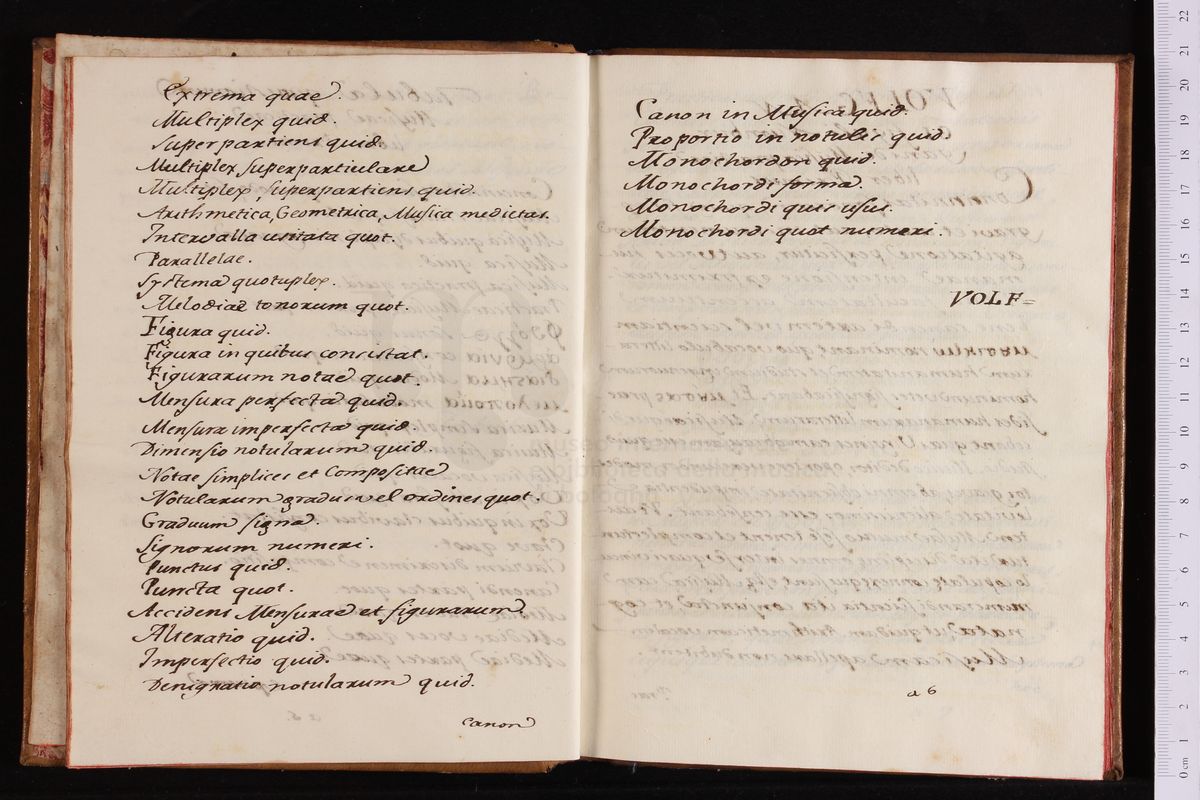 Extrema quae.
Multiplex quid.
Superpartiens quid.
Multiplex, superparticulare
Multiplex, superpartiens quid.
Arithmetica, Geometrica, Musica medietas.
Intervalla usitata quot.
Parallelae.
Systema quotuplex.
Melodiae tonorum quot.
Figura quid.
Figura in quibus consistat.
Figurarum notae quot.
Mensura perfecta quid.
Mensura imperfecta quid.
Dimensio notularum quid.
Notae simplices et Compositae
Notularum gradus vel ordines quot.
Graduum signa.
Signorum numeri.
Punctus quid.
Puncta quot.
Accidens Mensurae et figurarum
Alteratio quid.
Imperfectio quid.
Denigratio notularum quid.
Canon
Canon in Musica quid.
Proportio in notulis quid.
Monochordon quid.
Monochordi forma.
Monochordi quis usus.
Monochordi quot numeri.
VOLF=
a 6
0 cm 1 2 3 4 5 6 7 8 9 10 11 12 13 14 15 16 17 18 19 20 21 22